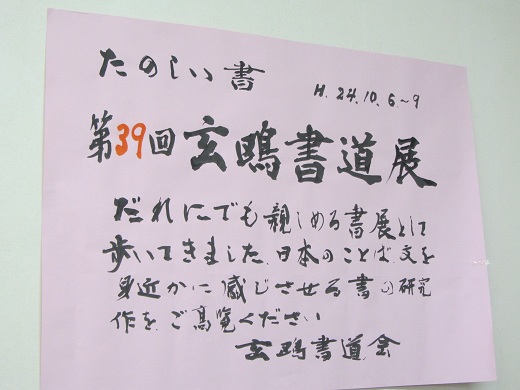 たのしい書
H.24.10.6~9
第39回玄鴎書道展
だれにでも親しめる書展として
歩いてきました。日本のことば、文を
身近かに感じさせる書の研究
作を、ご高覧ください
玄鴎書道会